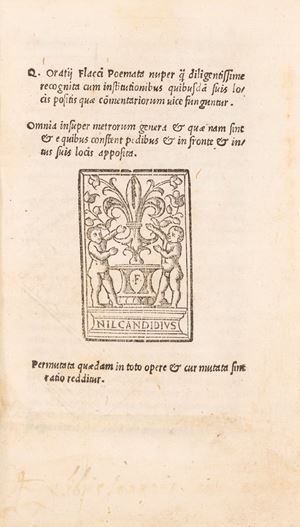 Q. Oratij Flacci Poemata nuper q̃ diligentissime
recognita cum institutionibus quibusdã suis lo-
cis positis quæ cõmentariorum uice funguntur.
Omnia insuper metrorum genera & quæ nam sint
& e quibus constent pedibus & in fronte & in-
tus suis locis apposita.
F
NIL CANDIDIVS
Permutata quædam in toto opere & cur mutata sint
ratio redditur.